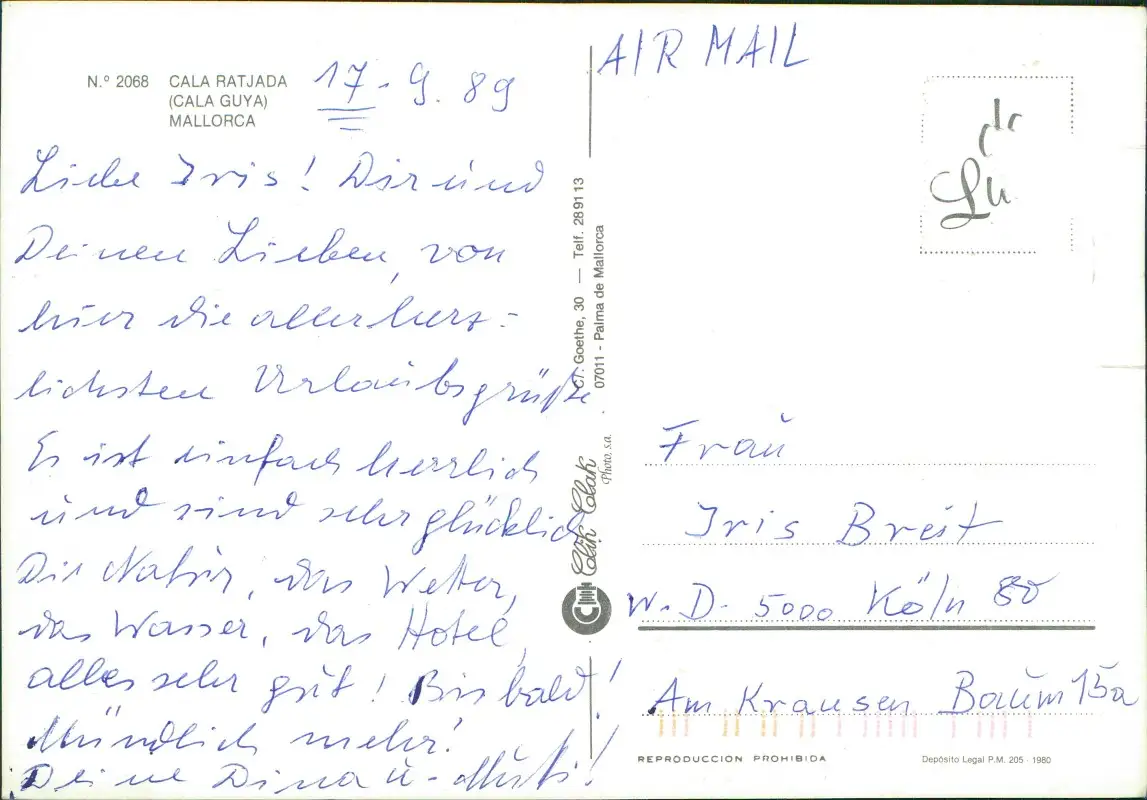 N.º 2068 CALA RATJADA
(CALA GUYA)
MALLORCA
17. 9. 89
Liebe Iris! Dir und
Deinen Lieben, von
hier die allerherz-
lichsten Urlaubsgrüße.
Es ist einfach herrlich
und sind sehr glücklich
Die Natur, das Wetter,
das Wasser, das Hotel,
alles sehr gut! Bis bald!
Mündlich mehr!
Deine Dina u - Muti!
C/. Goethe, 30 — Telf. 28 91 13
07011 - Palma de Mallorca
Clik Clak
Photo, s.a.
AIR MAIL
Frau
Iris Breit
W. D. 5000 Köln 80
Am Krausen Baum 15a
REPRODUCCION PROHIBIDA
Depósito Legal P.M. 205 - 1980